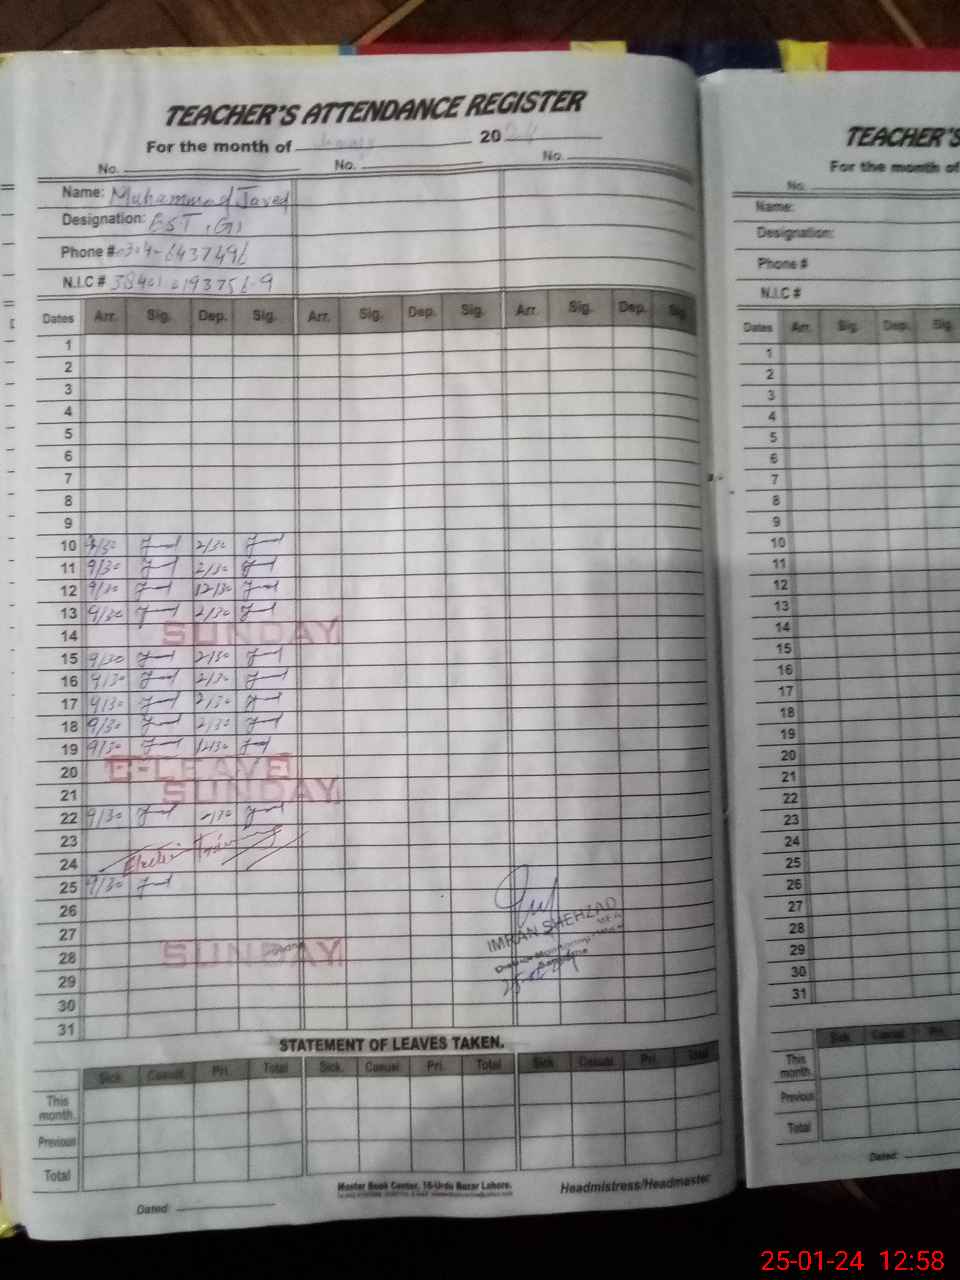 TEACHER'S ATTENDANCE REGISTER
For the month of 20 24
No. No. No.
Name: Muhammad Javed
Designation: EST, G1
Phone # 0304-6437496
N.I.C #
Dates Arr. Sig. Dep. Sig. Arr. Sig. Dep. Sig. Arr. Sig. Dep. Sig.
1
2
3
4
5
6
7
8
9
10 9/30 2/30
11 9/30 2/30
12 9/30 12/30
13 9/30 2/30
14 SUNDAY
15 9/30 2/30
16 9/30 2/30
17 9/30 2/30
18 9/30 2/30
19 9/30 12/30
20 C-LEAVE
21 SUNDAY
22 9/30 2/30
23
24
25 9/30
26
27
28 SUNDAY
29
30
31
IMRAN SHEHZAD
STATEMENT OF LEAVES TAKEN.
Sick. Casual. Pri. Total Sick. Casual. Pri. Total Sick. Casual. Pri. Total
This month.
Previous
Total
Master Book Center, 16-Urdu Bazar Lahore.
Headmistress/Headmaster
Dated:
TEACHER'S
For the month of
No.
Name:
Designation:
Phone #
N.I.C #
Dates Arr. Sig. Dep. Sig.
1
2
3
4
5
6
7
8
9
10
11
12
13
14
15
16
17
18
19
20
21
22
23
24
25
26
27
28
29
30
31
Sick. Casual. Pri.
This month.
Previous
Total
Dated:
25-01-24 12:58